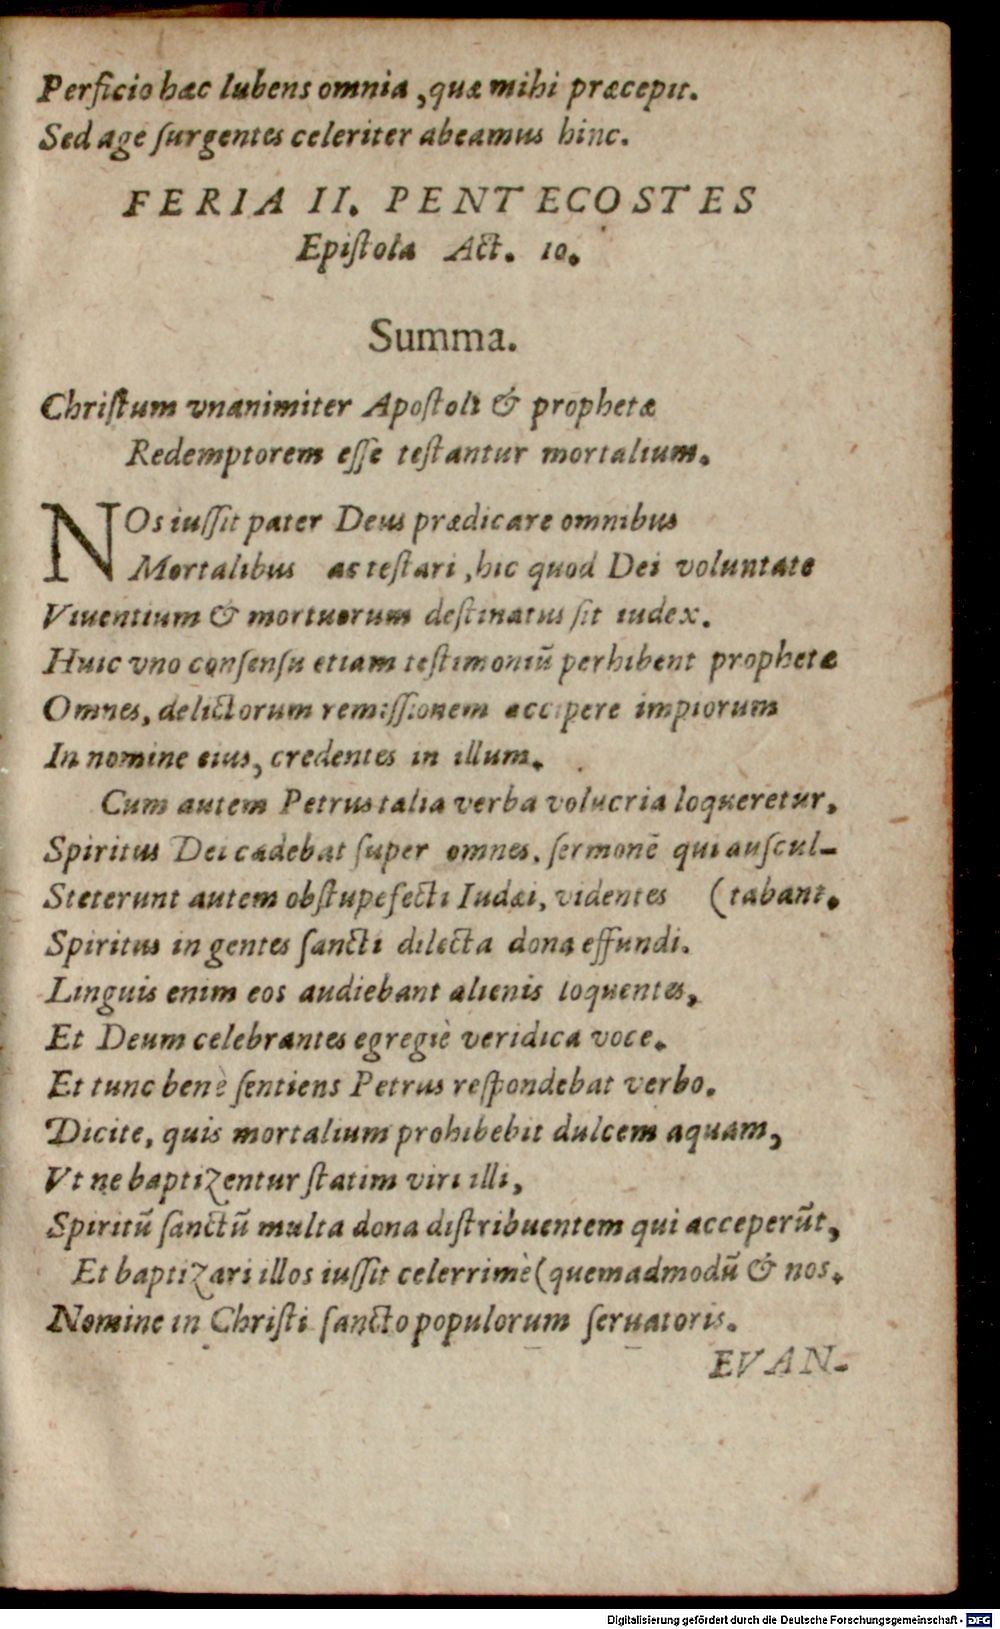 Perficio hæc lubens omnia, quæ mihi præcepit.
Sed age ſurgentes celeriter abeamus hinc.
FERIA II. PENTECOSTES
Epiſtola Act. 10.
Summa.
Chriſtum vnanimiter Apoſtoli & prophetæ
Redemptorem eſſe teſtantur mortalium.
NOs iuſſit pater Deus prædicare omnibus
Mortalibus ac teſtari, hic quod Dei voluntate
Viuentium & mortuorum deſtinatus ſit iudex.
Huic vno conſenſu etiam teſtimoniū perhibent prophetæ
Omnes, delictorum remiſſionem accipere impiorum
In nomine eius, credentes in illum.
Cum autem Petrus talia verba volucria loqueretur,
Spiritus Dei cadebat ſuper omnes, ſermonē qui auſcul-
Steterunt autem obſtupefecti Iudæi, videntes (tabant.
Spiritus in gentes ſancti dilecta dona effundi.
Linguis enim eos audiebant alienis loquentes,
Et Deum celebrantes egregiè veridica voce.
Et tunc benè ſentiens Petrus reſpondebat verbo.
Dicite, quis mortalium prohibebit dulcem aquam,
Vt ne baptizentur ſtatim viri illi,
Spiritū ſanctū multa dona diſtribuentem qui acceperūt,
Et baptizari illos iuſſit celerrimè (quemadmodū & nos.
Nomine in Chriſti ſancto populorum ſeruatoris.
EVAN-
Digitalisierung gefördert durch die Deutsche Forschungsgemeinschaft - DFG